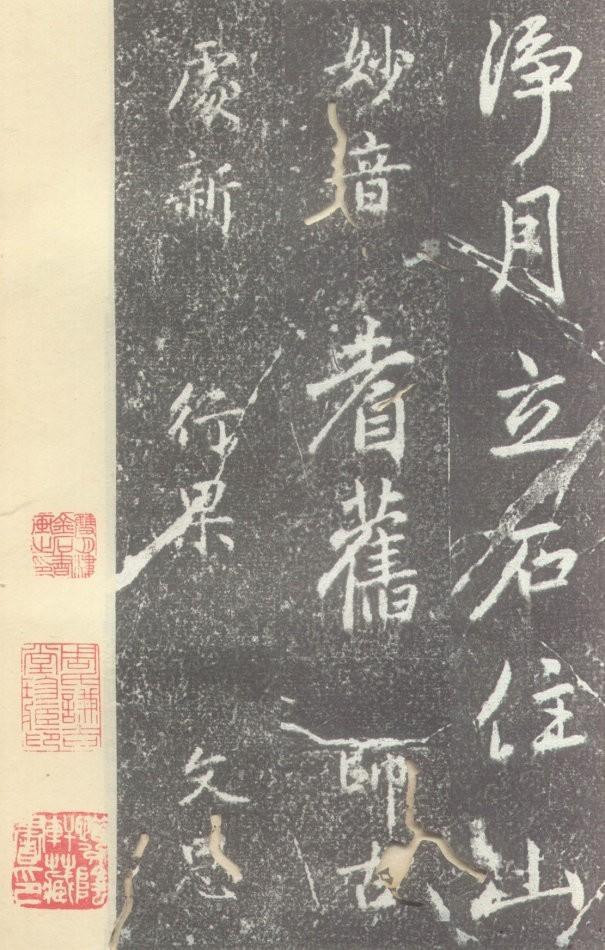 淨月立石住山
妙音耆舊師古
處新行果文思